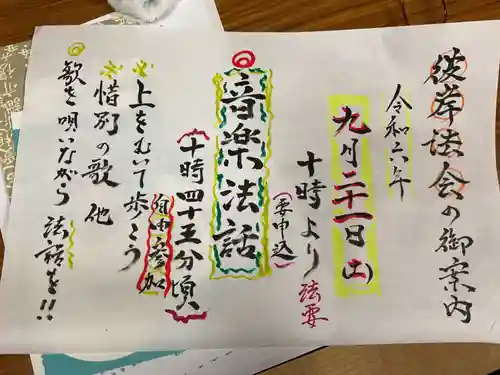 彼岸法会の御案内
令和六年
九月二十一日(土)
十時より法要
(要申込)
音楽法話
(十時四十五分頃)
自由参加
上をむいて歩こう
惜別の歌 他
歌を唄いながら法話を!!